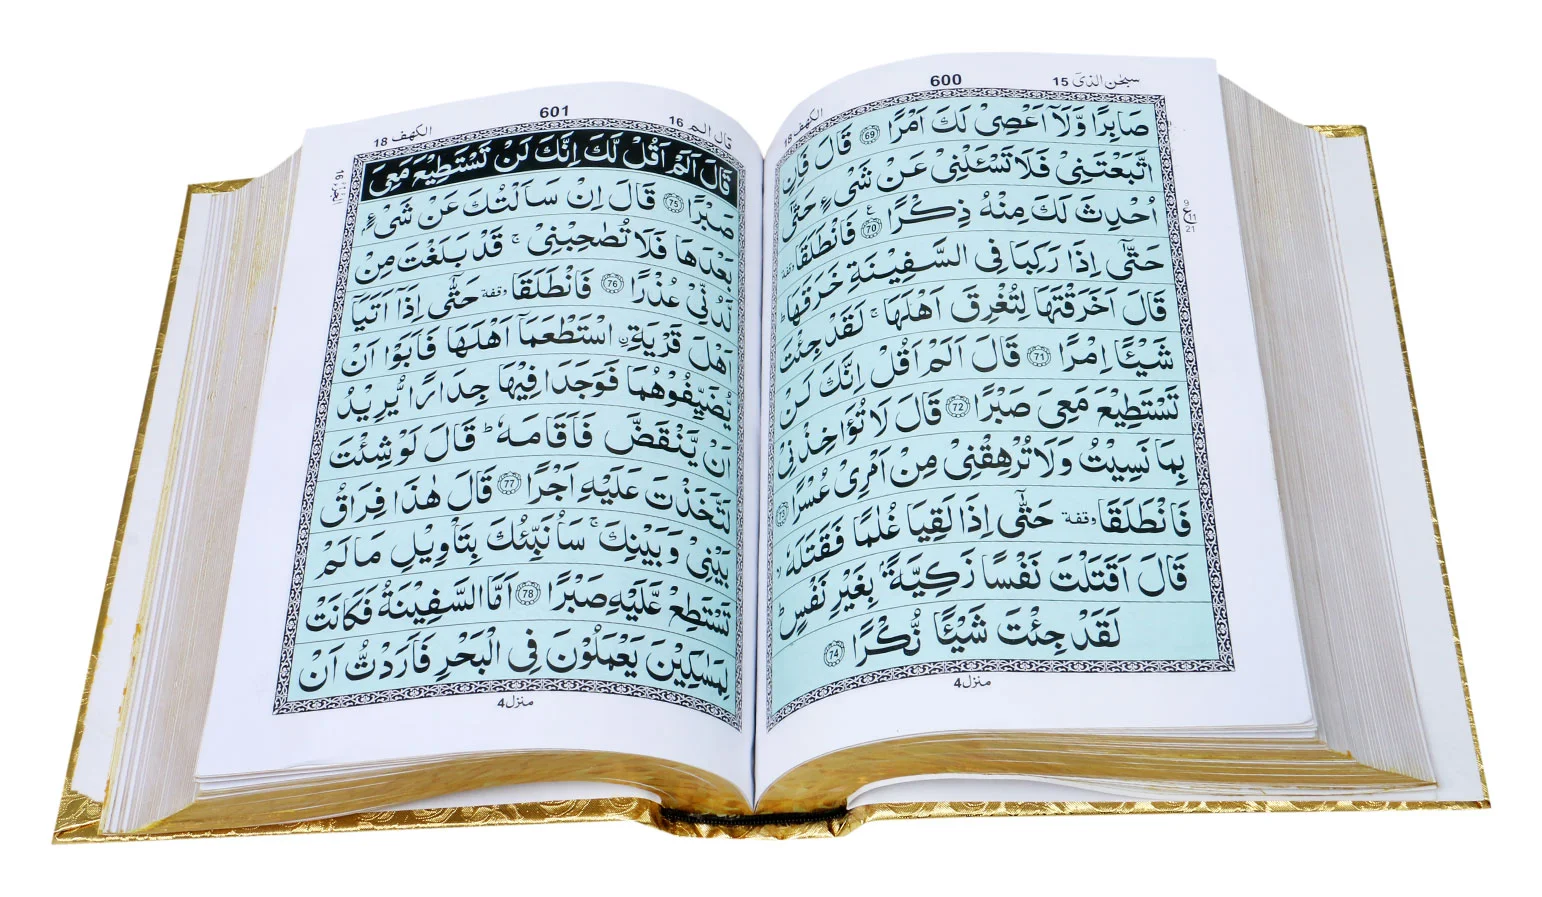 600
سبحٰن الذی 15
الکهف 18
صَابِرًا وَّلَاۤ اَعْصِیْ لَكَ اَمْرًا ﴿69﴾ قَالَ فَاِنِ
اتَّبَعْتَنِیْ فَلَا تَسْـَٔلْنِیْ عَنْ شَیْءٍ حَتّٰۤی
اُحْدِثَ لَكَ مِنْهُ ذِكْرًا ﴿70﴾ ع فَانْطَلَقَا وقفة
حَتّٰۤی اِذَا رَكِبَا فِی السَّفِیْنَةِ خَرَقَهَا ؕ
قَالَ اَخَرَقْتَهَا لِتُغْرِقَ اَهْلَهَا ۚ لَقَدْ جِئْتَ
شَیْـًٔا اِمْرًا ﴿71﴾ قَالَ اَلَمْ اَقُلْ اِنَّكَ لَنْ
تَسْتَطِیْعَ مَعِیَ صَبْرًا ﴿72﴾ قَالَ لَا تُؤَاخِذْنِیْ
بِمَا نَسِیْتُ وَلَا تُرْهِقْنِیْ مِنْ اَمْرِیْ عُسْرًا ﴿73﴾
فَانْطَلَقَا وقفة حَتّٰۤی اِذَا لَقِیَا غُلٰمًا فَقَتَلَهٗ ۙ
قَالَ اَقَتَلْتَ نَفْسًا زَكِیَّةًۢ بِغَیْرِ نَفْسٍ ؕ
لَقَدْ جِئْتَ شَیْـًٔا نُّكْرًا ﴿74﴾
منزل 4
ع
9
11
21
601
قال الم 16
الکهف 18
قَالَ اَلَمْ اَقُلْ لَّكَ اِنَّكَ لَنْ تَسْتَطِیْعَ مَعِیَ
صَبْرًا ﴿75﴾ قَالَ اِنْ سَاَلْتُكَ عَنْ شَیْءٍۭ
بَعْدَهَا فَلَا تُصٰحِبْنِیْ ۚ قَدْ بَلَغْتَ مِنْ
لَّدُنِّیْ عُذْرًا ﴿76﴾ فَانْطَلَقَا وقفة حَتّٰۤی اِذَاۤ اَتَیَاۤ
اَهْلَ قَرْیَةِ ِۨاسْتَطْعَمَاۤ اَهْلَهَا فَاَبَوْا اَنْ
یُّضَیِّفُوْهُمَا فَوَجَدَا فِیْهَا جِدَارًا یُّرِیْدُ
اَنْ یَّنْقَضَّ فَاَقَامَهٗ ؕ قَالَ لَوْ شِئْتَ
لَتَّخَذْتَ عَلَیْهِ اَجْرًا ﴿77﴾ قَالَ هٰذَا فِرَاقُ
بَیْنِیْ وَبَیْنِكَ ۚ سَاُنَبِّئُكَ بِتَاْوِیْلِ مَا لَمْ
تَسْتَطِعْ عَّلَیْهِ صَبْرًا ﴿78﴾ اَمَّا السَّفِیْنَةُ فَكَانَتْ
لِمَسٰكِیْنَ یَعْمَلُوْنَ فِی الْبَحْرِ فَاَرَدْتُّ اَنْ
منزل 4